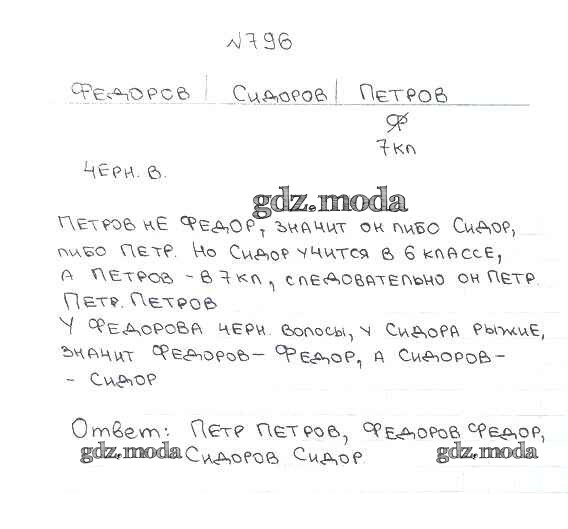 №796
ФЕДОРОВ | СИДОРОВ | ПЕТРОВ
Ф
7 КЛ
ЧЕРН. В.
gdz.moda
ПЕТРОВ НЕ ФЕДОР, ЗНАЧИТ ОН ЛИБО СИДОР,
ЛИБО ПЕТР. НО СИДОР УЧИТСЯ В 6 КЛАССЕ,
А ПЕТРОВ - В 7 КЛ, СЛЕДОВАТЕЛЬНО ОН ПЕТР.
ПЕТР. ПЕТРОВ
У ФЕДОРОВА ЧЕРН. ВОЛОСЫ, У СИДОРА РЫЖИЕ,
ЗНАЧИТ ФЕДОРОВ - ФЕДОР, А СИДОРОВ -
- СИДОР
Ответ: ПЕТР ПЕТРОВ, ФЕДОРОВ ФЕДОР,
gdz.moda СИДОРОВ СИДОР gdz.moda